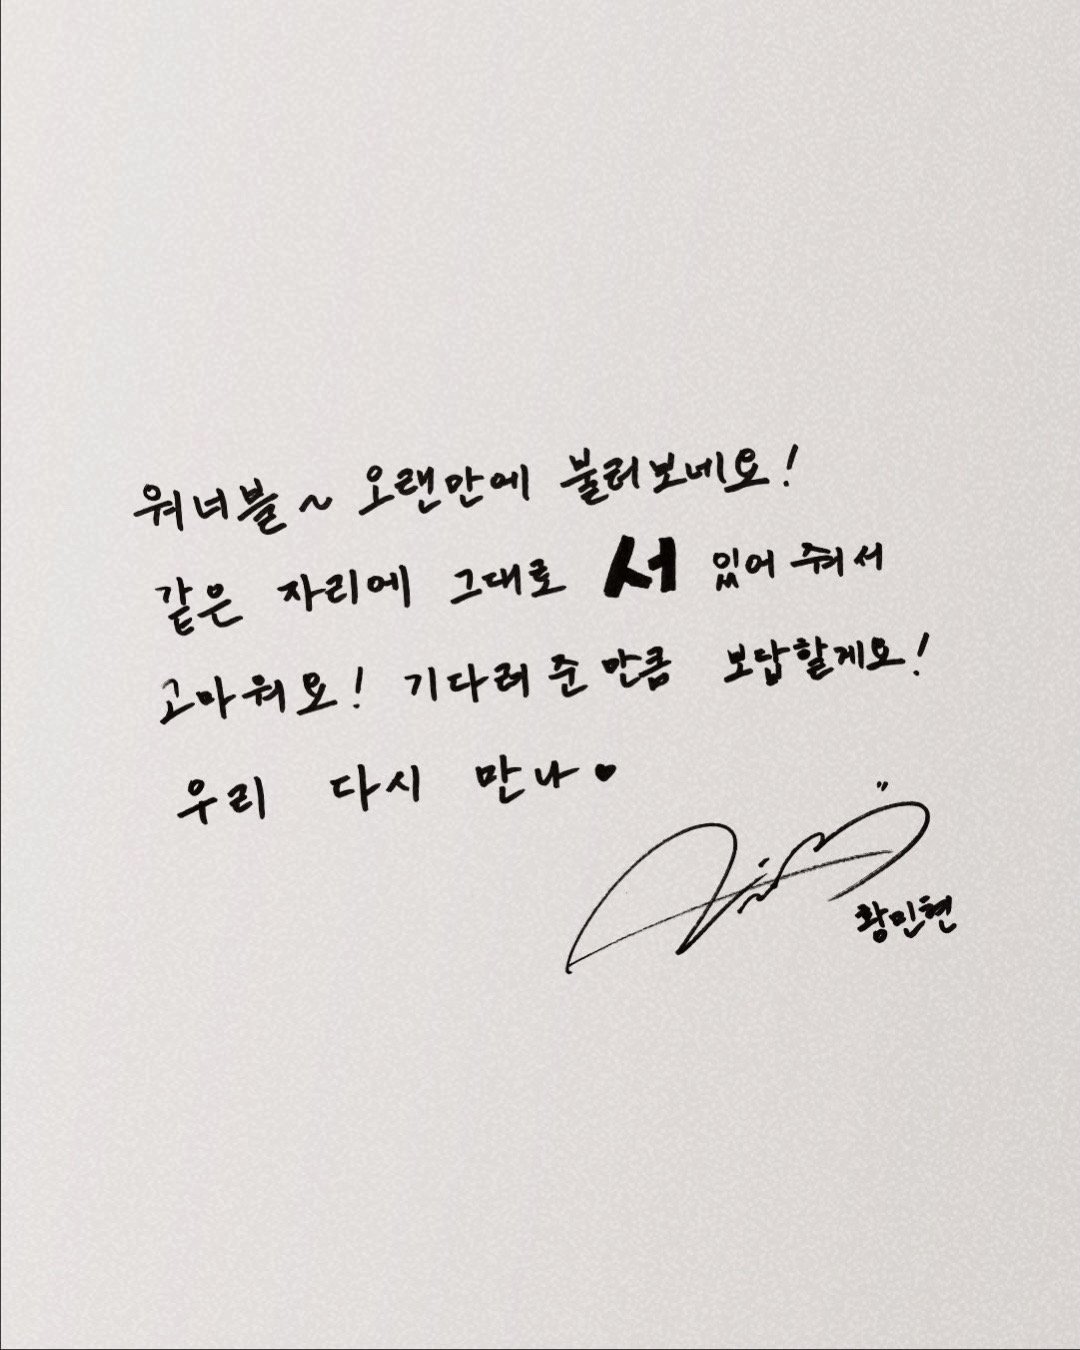 워너블~ 오랜만에 불러보네요!
같은 자리에 그대로 서 있어 줘서
고마워요! 기다려 준 만큼 보답할게요!
우리 다시 만나♥
황민현